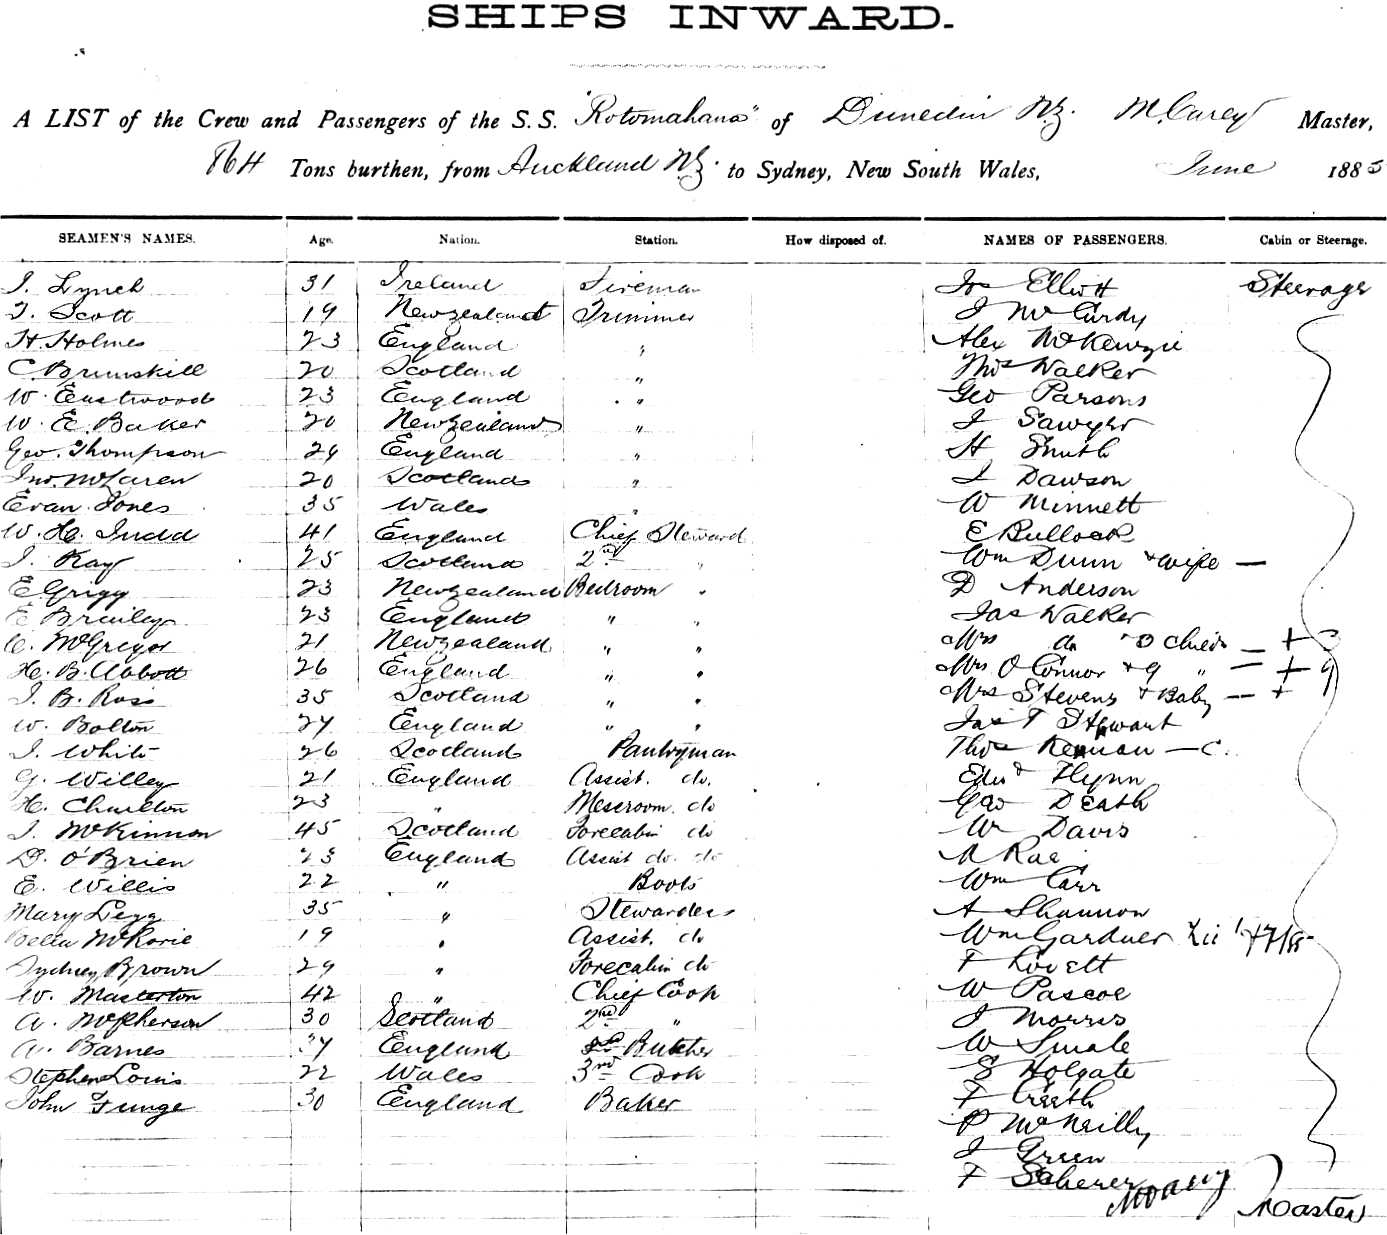 SHIPS INWARD.
A LIST of the Crew and Passengers of the S.S. "Rotomahana" of Dunedin NZ. M. Carey Master,
864 Tons burthen, from Auckland NZ. to Sydney, New South Wales, June 1885
SEAMEN'S NAMES. Age. Nation. Station. How disposed of. NAMES OF PASSENGERS. Cabin or Steerage.
J. Lynch 31 Ireland Fireman Jos Elliott Steerage
T. Scott 19 Newzealand Trimmer J McCurdy
H. Holmes 23 England " Alex McKenzie
C. Brunskill 20 Scotland " Thos Walker
W. Eastwood 23 England " Geo Parsons
W. E. Baker 20 Newzealand " J Sawyer
Geo. Thompson 29 England " H Smith
Jno. McLaren 20 Scotland " J Dawson
Evan Jones 35 Wales " W Minnett
W. H. Judd 41 England Chief Steward E Bullock
J. Kay 25 Scotland 2nd " Wm Dunn & wife —
E Grigg 23 Newzealand Bedroom " D Anderson
E Brailey 23 England " " Jas Walker
C. McGregor 21 Newzealand " " Mrs do
H. B. Abbott 26 England " " Mrs O'Connor & 9 " — + 9
J. B. Ross 35 Scotland " " Mrs Stevens & Baby — +
W. Bolton 27 England " " Jas T Stewart
J. White 26 Scotland Pantryman Thos — C.
G. Willey 21 England Assist. do. Edwd Flynn
H. Charlton 23 " Messroom do Geo Death
J. McKinnon 45 Scotland Forecabin do Wm Davis
D. O'Brien 23 England Assist do. do Rae
E. Willis 22 " Boots Wm Carr
Mary Legg 35 " Stewardess A Shannon
Bella McRorie 19 " Assist. do Wm Gardner
Sydney Brown 29 " Forecabin do F Lovett
W. Masterton 42 " Chief Cook W Pascoe
A. McPherson 30 Scotland 2nd " J Morris
A. Barnes 34 England Butcher W Smale
Stephen Louis 22 Wales 3rd Cook S Holgate
John Funge 30 England Baker F Creeth
P McNeilly
J Green
F Scherer
M Carey Master